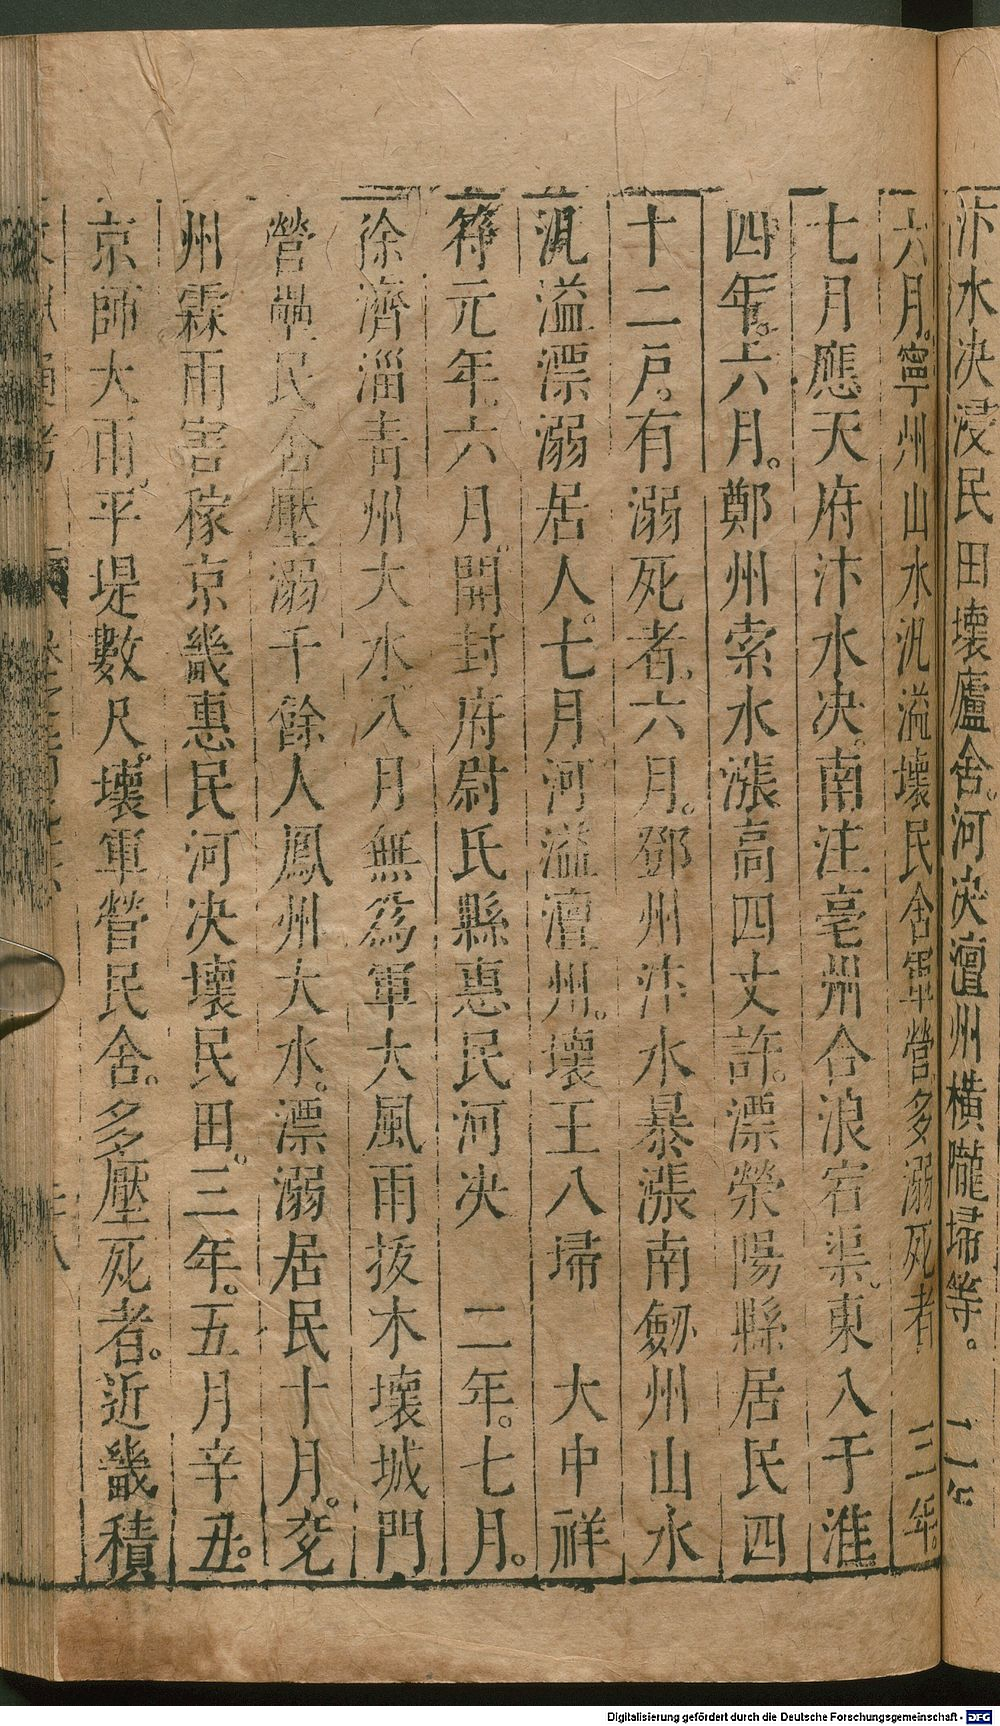 汴水决浸民田壞廬舍。河决澶州橫隴埽等。二年
六月。寧州山水汎溢壞民舍軍營多溺死者 三年。
七月應天府汴水决。南注亳州合浪宕渠。東入于淮
四年。六月。鄭州索水漲高四丈許。漂滎陽縣居民四
十二戶。有溺死者。六月。鄧州汴水暴漲南劒州山水
汎溢漂溺居人。七月河溢澶州。壞王八埽 大中祥
符元年。六月開封府尉氏縣惠民河决 二年。七月。
徐濟淄靑州大水八月無爲軍大風雨拔木壞城門
營壘民舍壓溺千餘人鳳州大水。漂溺居民十月。兖
州霖雨害稼京畿惠民河决壞民田。三年。五月辛丑。
京師大雨。平堤數尺。壞軍營民舍。多壓死者。近畿積
Digitalisierung gefördert durch die Deutsche Forschungsgemeinschaft - DFG